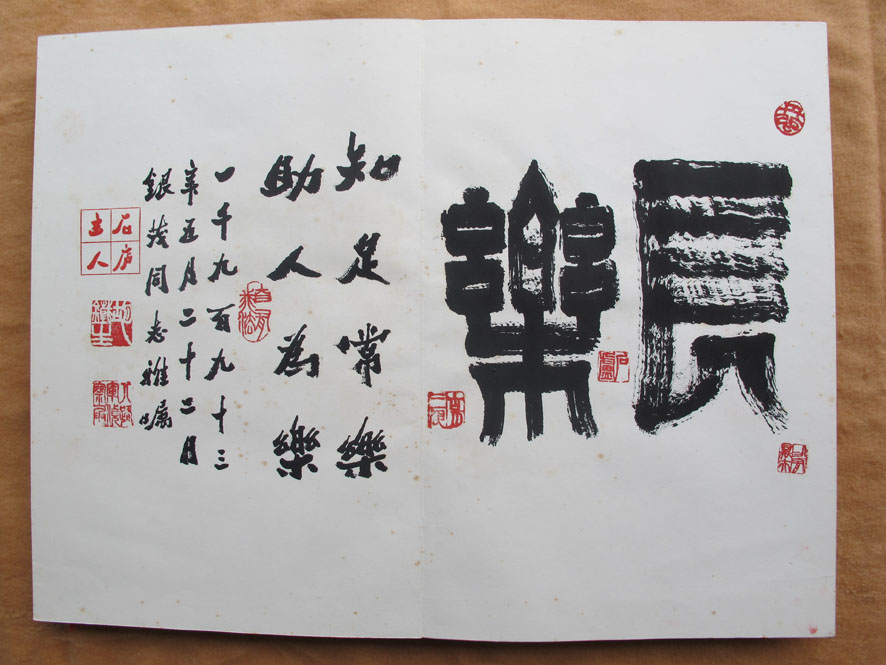 長樂
知足常樂
助人為樂
一千九百九十三
年五月二十二日
銀茂同志雅囑
石庐主人